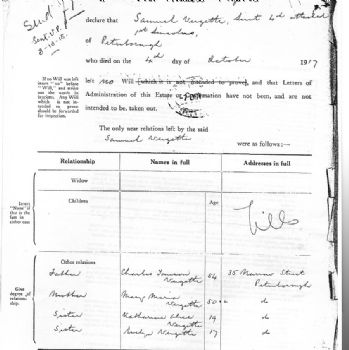 declare that Samuel Vergette, Lieut 4th attached
of Peterborough
who died on the 4th day of October 1917
If no Will was left
insert "no" before
"Will," and strike
out the words in
brackets. Any Will
which is not in-
tended to prove
should be forwarded
for inspection.
left no Will (which it is not intended to prove), and that Letters of
Administration of this Estate or Confirmation have not been, and are not
intended to be, taken out.
The only near relations left by the said
Samuel Vergette
were as follows:—
Relationship Names in full Addresses in full
Widow
Children Age
Insert
"None" if
this is the
fact in
either case
Other relations
Give
degree of
relation-
ship.
Father Charles Vergette 54 35 Street
Peterborough
Mother Mary Maria Vergette 50 do
Sister Katharine Vergette 19 do
Sister Vergette 17 do